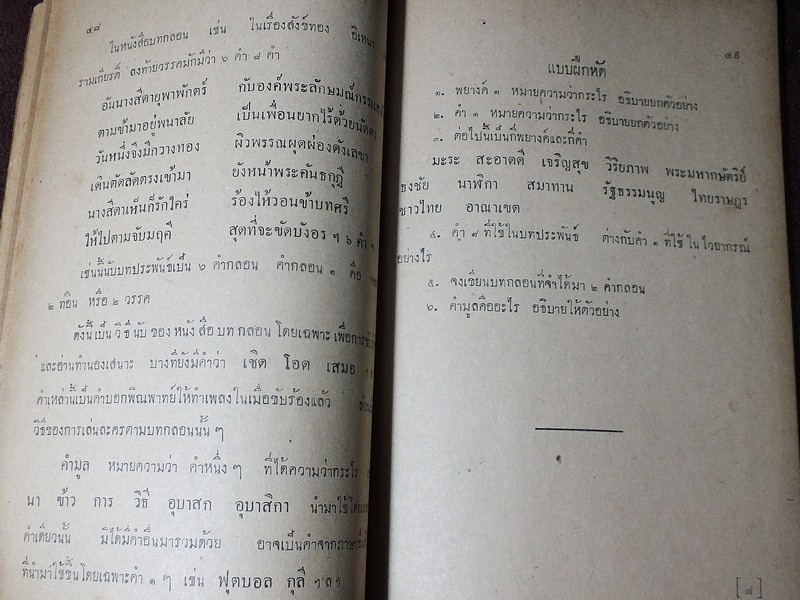 ๔๘
ในหนังสือบทกลอน เช่น ในเรื่องสังข์ทอง อิเหนา
รามเกียรติ์ ลงท้ายวรรคมักมีว่า ๖ คำ ๘ คำ
อันนางสีดายุพาพักตร์ กับองค์พระลักษมณ์
ตามข้ามาอยู่พนาลัย เป็นเพื่อนยากไร้ด้วย
วันหนึ่งจึงมีกวางทอง ผิวพรรณผุดผ่องดังเลขา
เดินตัดลัดตรงเข้ามา ยังหน้าพระคันธกุฎี
นางสีดาเห็นก็รักใคร่ ร้องไห้วอนข้าบทศรี
ให้ไปตามจับมฤคี สุดที่จะขัดบังอร ฯ ๖ คำ ฯ
เช่นนี้นับบทประพันธ์เป็น ๖ คำกลอน คำกลอน ๑ คือ
๒ ท่อน หรือ ๒ วรรค
ดังนี้เป็นวิธีนับของหนังสือบทกลอนโดยเฉพาะ เพื่อการ
และอ่านทำนองเสนาะ บางที่ยังมีคำว่า เชิด โอด เสมอ
คำเหล่านี้เป็นคำบอกพิณพาทย์ให้ทำเพลงในเมื่อขับร้องแล้ว
วิธีของการเล่นละครตามบทกลอนนั้น ๆ
คำมูล หมายความว่า คำหนึ่ง ๆ ที่ได้ความว่ากระไร
นา ข้าว การ วิธี อุบาสก อุบาสิกา นำมาใช้โดย
คำเดียวนั้น มิได้มีคำอื่นมารวมด้วย อาจเป็นคำจากภาษา
ที่นำมาใช้ขึ้นโดยเฉพาะคำ ๑ ๆ เช่น ฟุตบอล กุลี ฯลฯ
๔๙
แบบฝึกหัด
๑. พยางค์ ๑ หมายความว่ากระไร อธิบายยกตัวอย่าง
๒. คำ ๑ หมายความว่ากระไร อธิบายยกตัวอย่าง
๓. ต่อไปนี้เป็นกี่พยางค์และกี่คำ
มะระ สะอาดดี เจริญสุข วิริยภาพ พระมหากษัตริย์
ธงชัย นาฬิกา สมาทาน รัฐธรรมนูญ ไทยราษฎร
ชาวไทย อาณาเขต
๔. คำ ๑ ที่ใช้ในบทประพันธ์ ต่างกับคำ ๑ ที่ใช้ในไวยากรณ์
อย่างไร
๕. จงเขียนบทกลอนที่จำได้มา ๒ คำกลอน
๖. คำมูลคืออะไร อธิบายให้ตัวอย่าง
[๘]